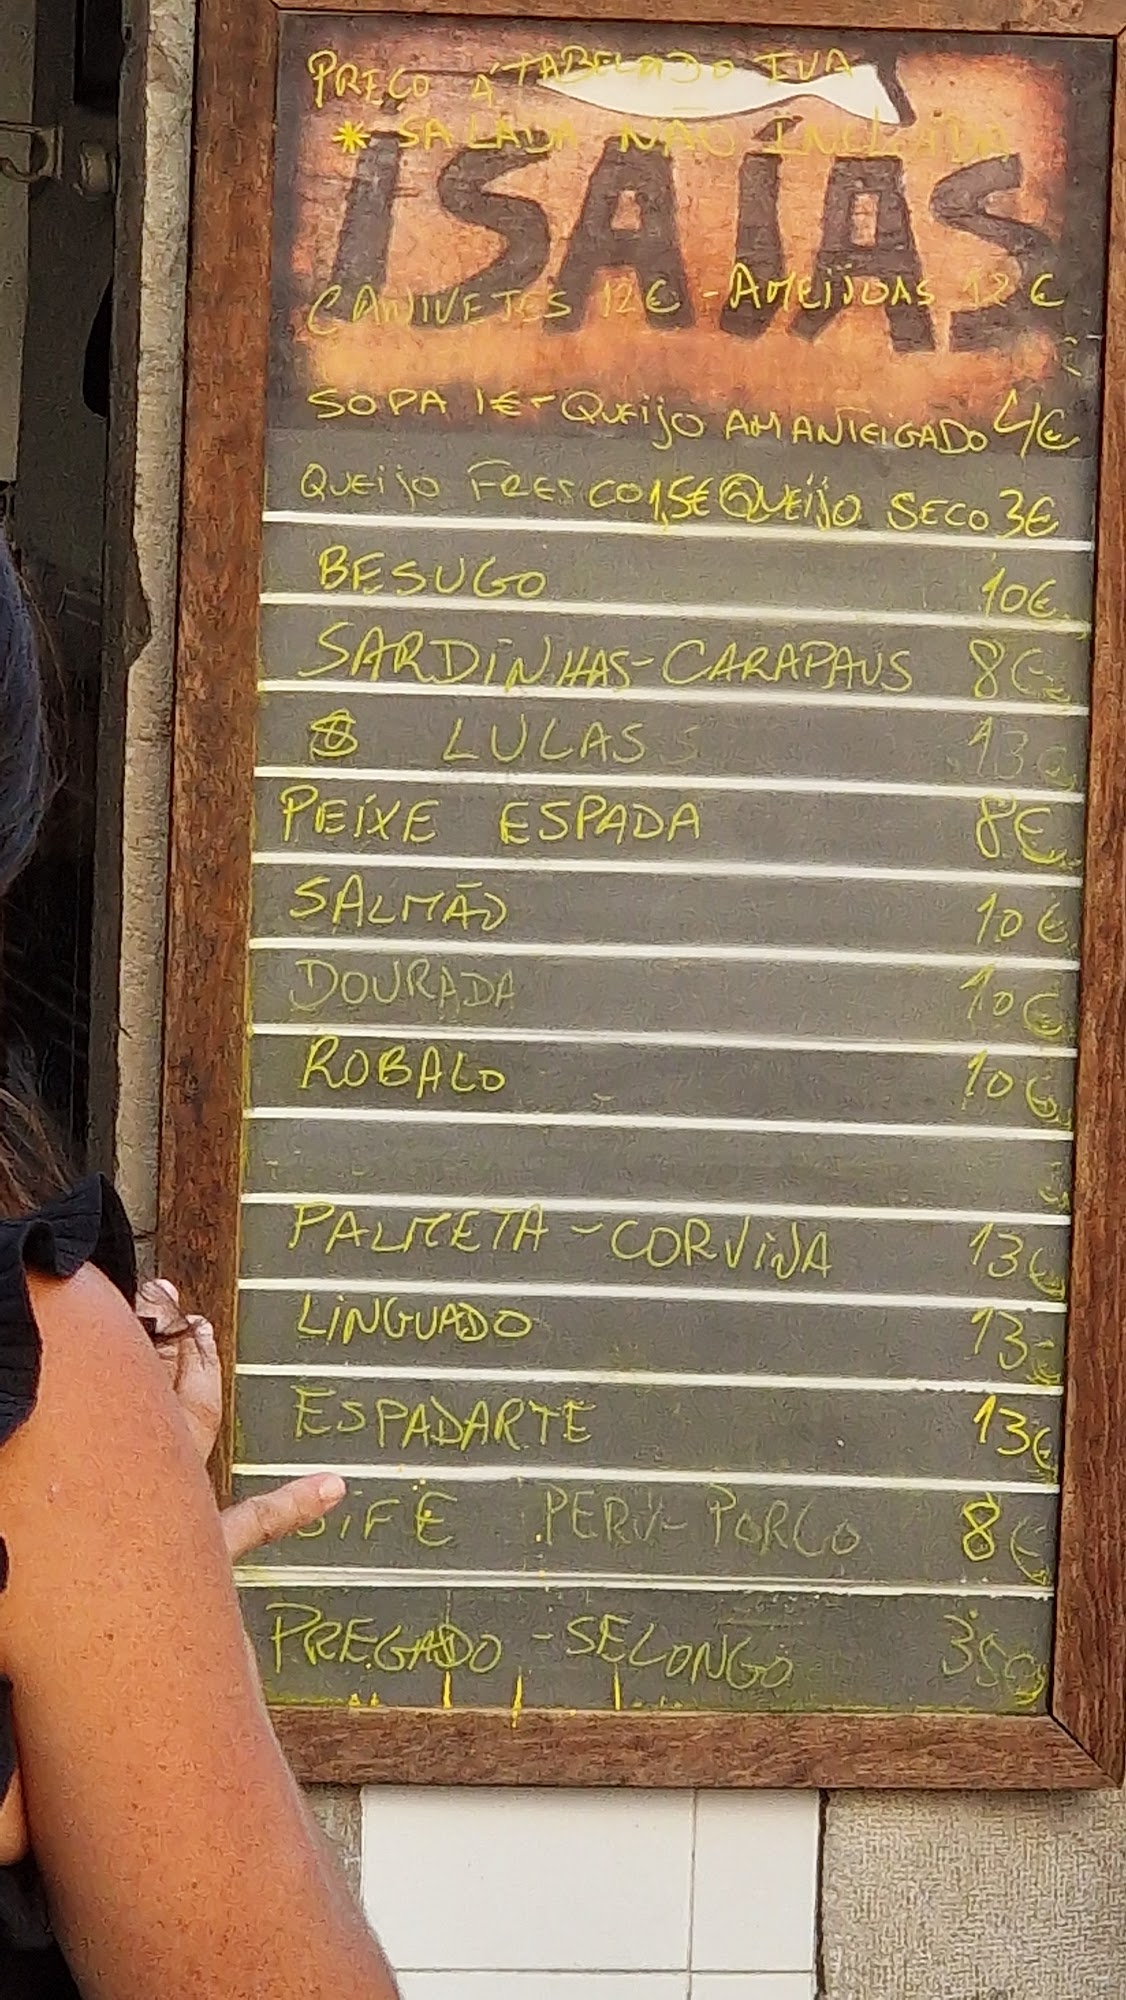 PREÇO Á TABELADO IVA
* SALADA NÃO INCLUIDA
ISAÍAS
CANIVETES 12€ - AMEIJOAS 12€
SOPA 1€ - QUEIJO AMANTEIGADO 4€
QUEIJO FRESCO 1,5€ QUEIJO SECO 3€
BESUGO 10€
SARDINHAS - CARAPAUS 8€
LULAS 13€
PEIXE ESPADA 8€
SALMÃO 10€
DOURADA 10€
ROBALO 10€
PALMETA - CORVINA 13€
LINGUADO 13€
ESPADARTE 13€
BIFE PERU - PORCO 8€
PREGADO - SELONGO